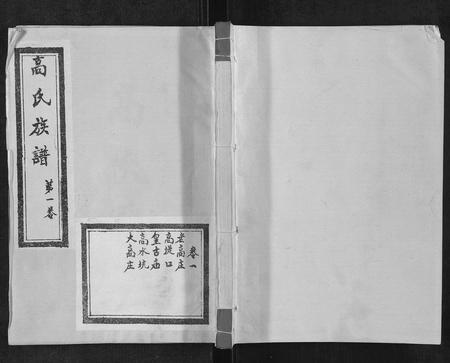 高氏族譜
第一卷
卷一
老高庄
高堤口
皇古庙
高水坑
大高庄